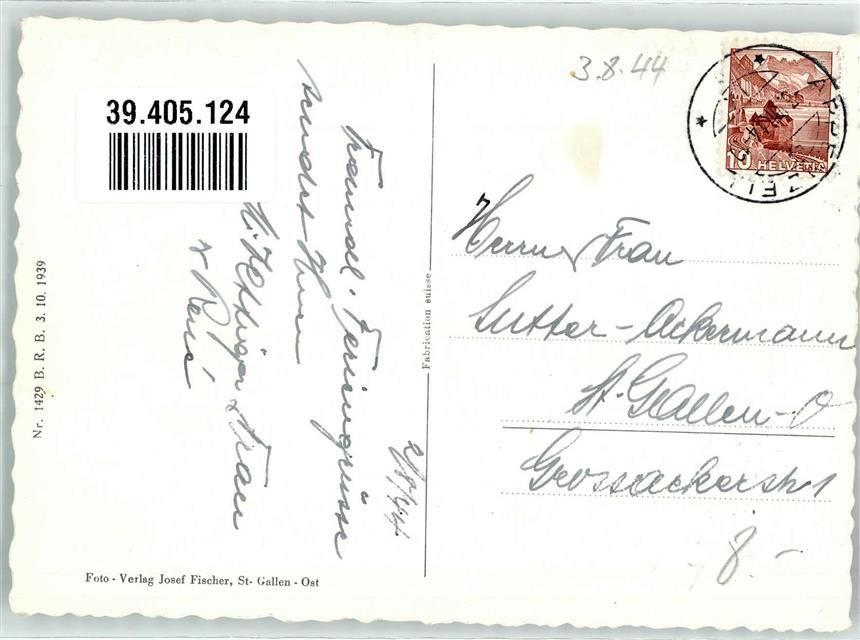 39.405.124
2/8/44
Freundl. Feriengrüsse
sendet Ihnen
Hettinger & Frau
& René
Nr. 1429 B. R. B. 3. 10. 1939
Foto - Verlag Josef Fischer, St- Gallen - Ost
Fabrication suisse
3.8.44
APPENZELL
10 HELVETIA
Herrn & Frau
Sutter-Ackermann
St. Gallen-O
Grossackerstr 1
8.-